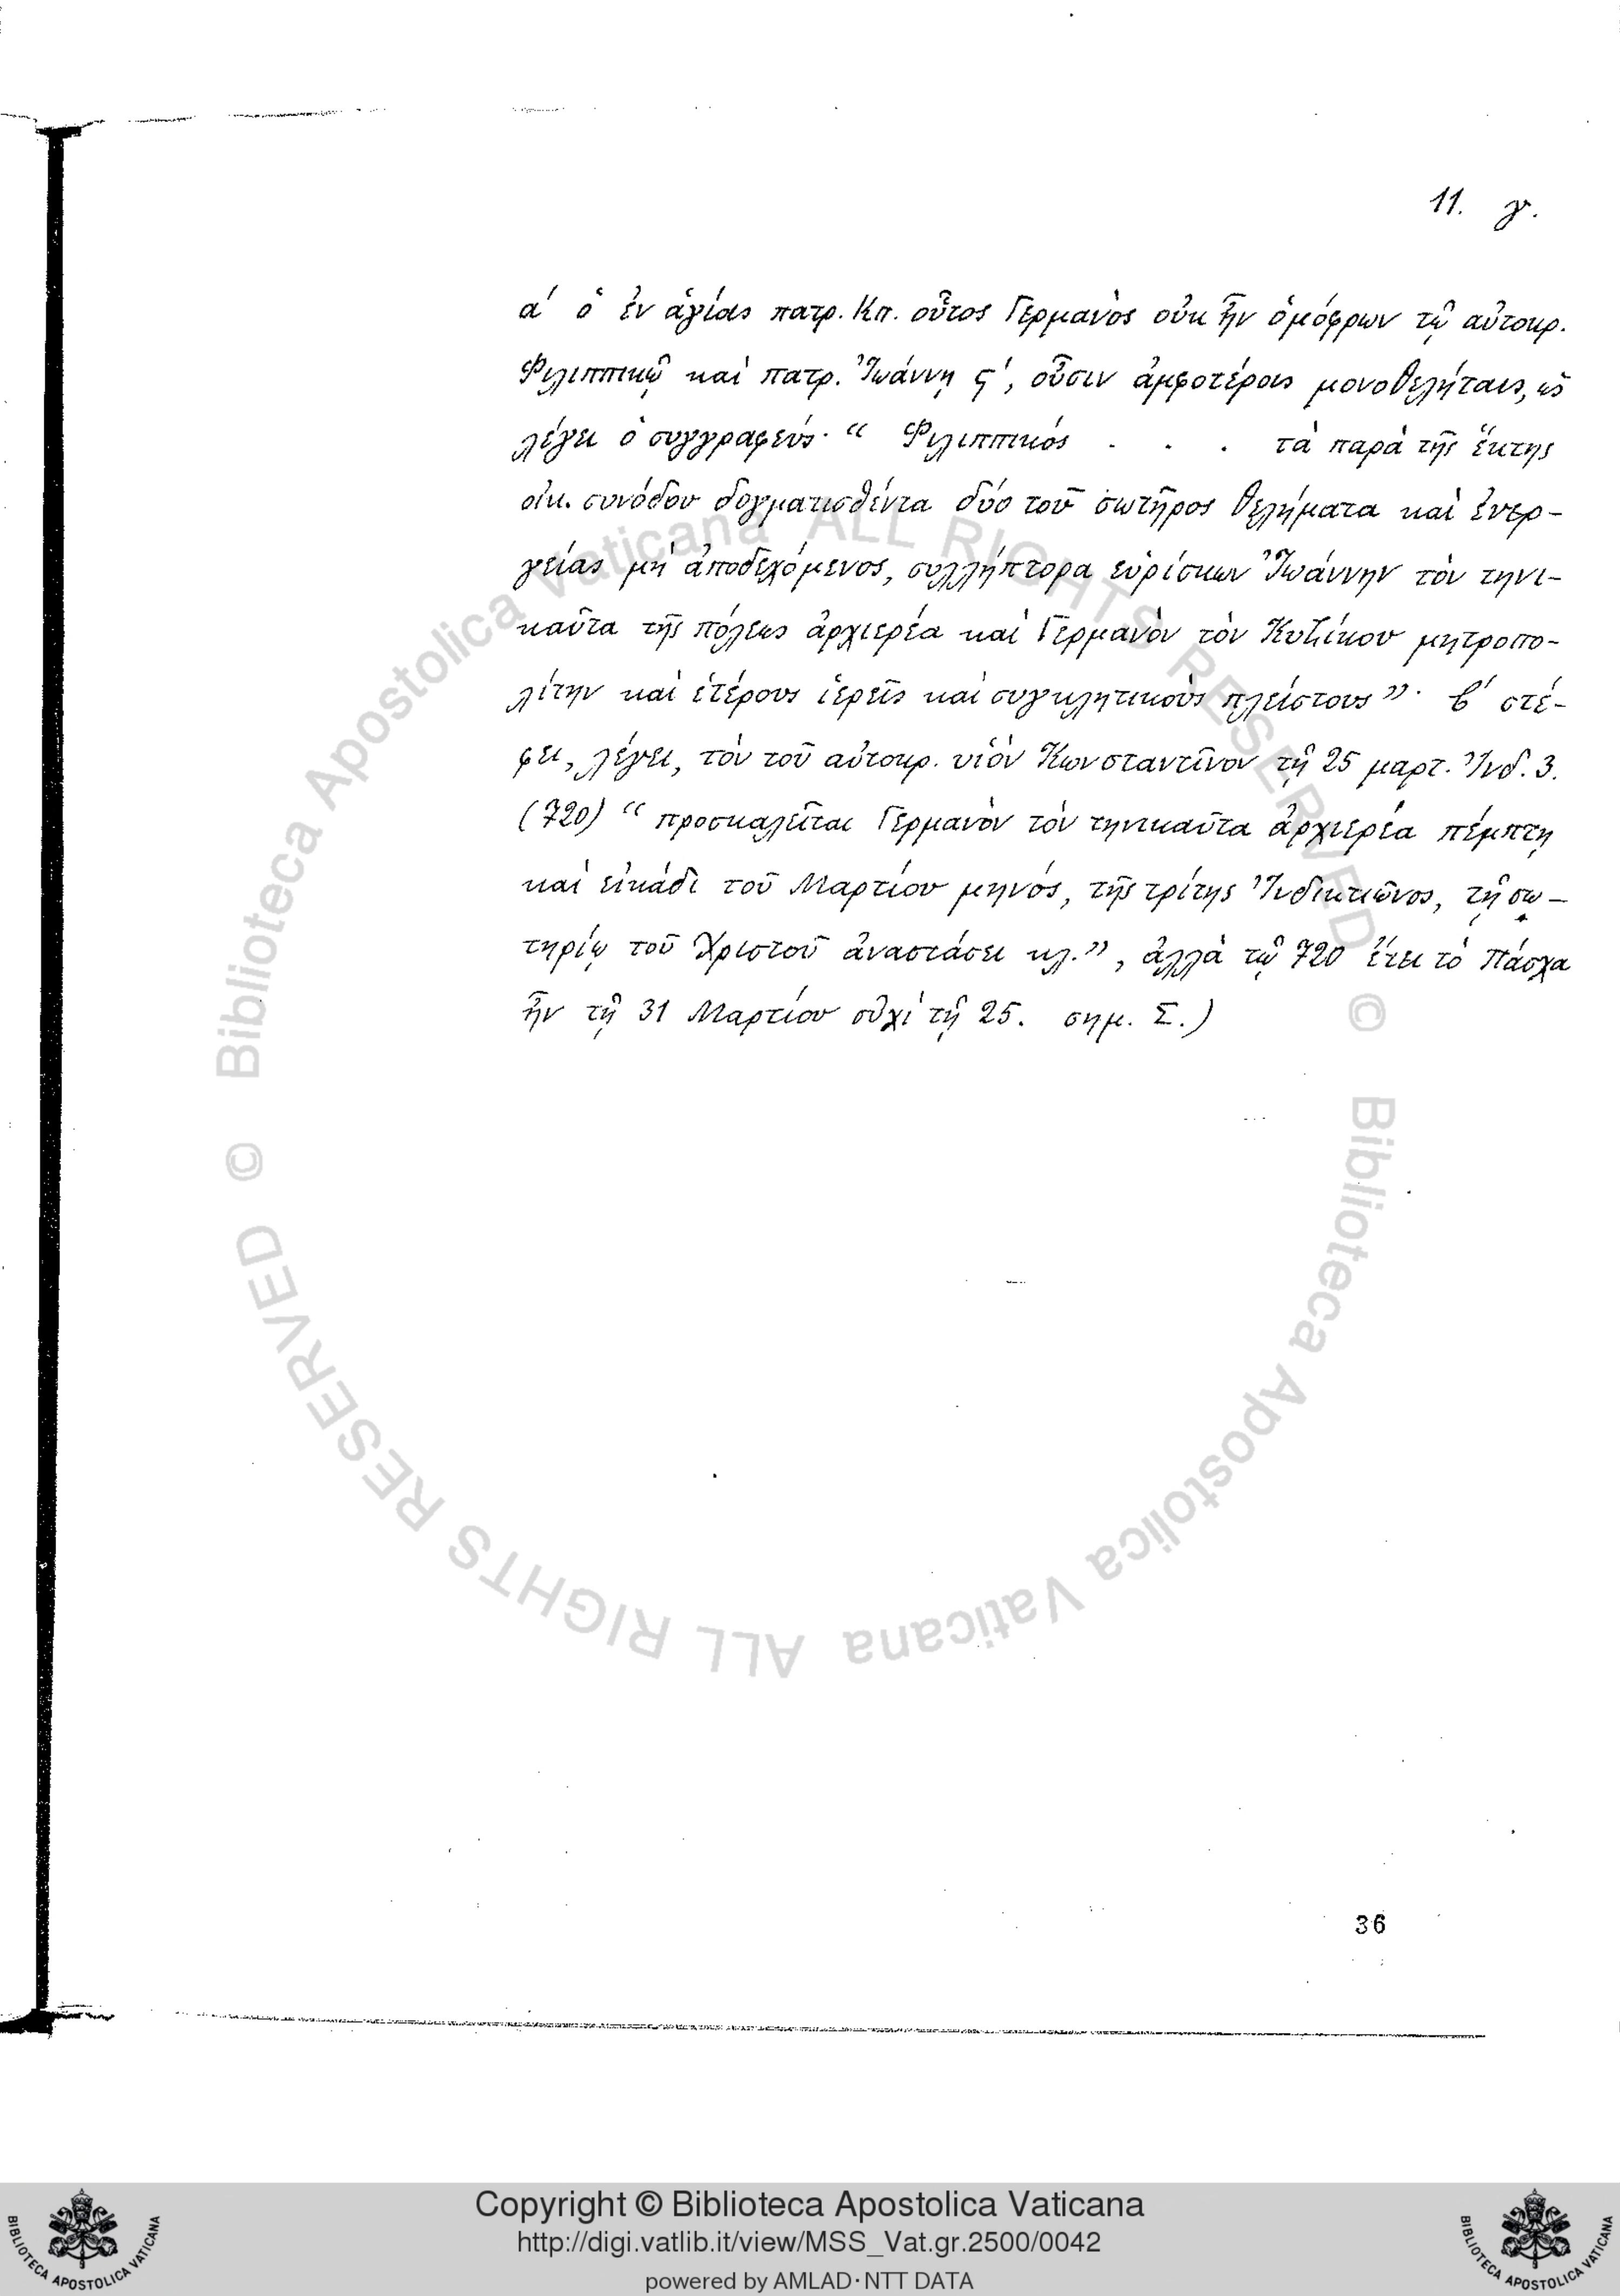 11. γ.
α' ὁ ἐν ἁγίοις πατρ. Κπ. οὗτος Γερμανὸς οὐκ ἦν ὁμόφρων τῷ αὐτοκρ.
Φιλιππικῷ καὶ πατρ. Ἰωάννῃ ϛ', οὖσιν ἀμφοτέροις μονοθελήταις, ὡς
λέγει ὁ συγγραφεύς· “ Φιλιππικός . . . τὰ παρὰ τῆς ἕκτης
οἰκ. συνόδου δογματισθέντα δύο τοῦ σωτῆρος θελήματα καὶ ἐνερ-
γείας μὴ ἀποδεχόμενος, συλλήπτορα εὑρίσκων Ἰωάννην τὸν τηνι-
καῦτα τῆς πόλεως ἀρχιερέα καὶ Γερμανὸν τὸν Κυζίκου μητροπο-
λίτην καὶ ἑτέρους ἱερεῖς καὶ συγκλητικοὺς πλείστους ”· β' στέ-
φει, λέγει, τὸν τοῦ αὐτοκρ. υἱὸν Κωνσταντῖνον τῇ 25 μαρτ. Ἰνδ. 3.
(720) “ προσκαλεῖται Γερμανὸν τὸν τηνικαῦτα ἀρχιερέα πέμπτῃ
καὶ εἰκάδι τοῦ Μαρτίου μηνός, τῆς τρίτης Ἰνδικτιῶνος, τῇ σω-
τηρίῳ τοῦ Χριστοῦ ἀναστάσει κλ.”, ἀλλὰ τῷ 720 ἔτει τὸ Πάσχα
ἦν τῇ 31 Μαρτίου οὐχὶ τῇ 25. σημ. Σ.)
36
© Biblioteca Apostolica Vaticana ALL RIGHTS RESERVED
© Biblioteca Apostolica Vaticana ALL RIGHTS RESERVED
Copyright © Biblioteca Apostolica Vaticana
http://digi.vatlib.it/view/MSS_Vat.gr.2500/0042
powered by AMLAD·NTT DATA
BIBLIOTECA APOSTOLICA VATICANA
BIBLIOTECA APOSTOLICA VATICANA